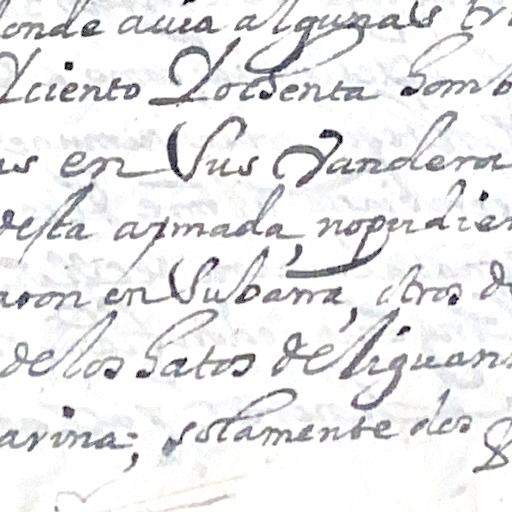 onde avia algunas tr
Yciento Yochenta homb
as en Sus Vandera
desta armada, nopudier
aron en Subarra, otros de
de los hatos de liguan
arina; solamente dos